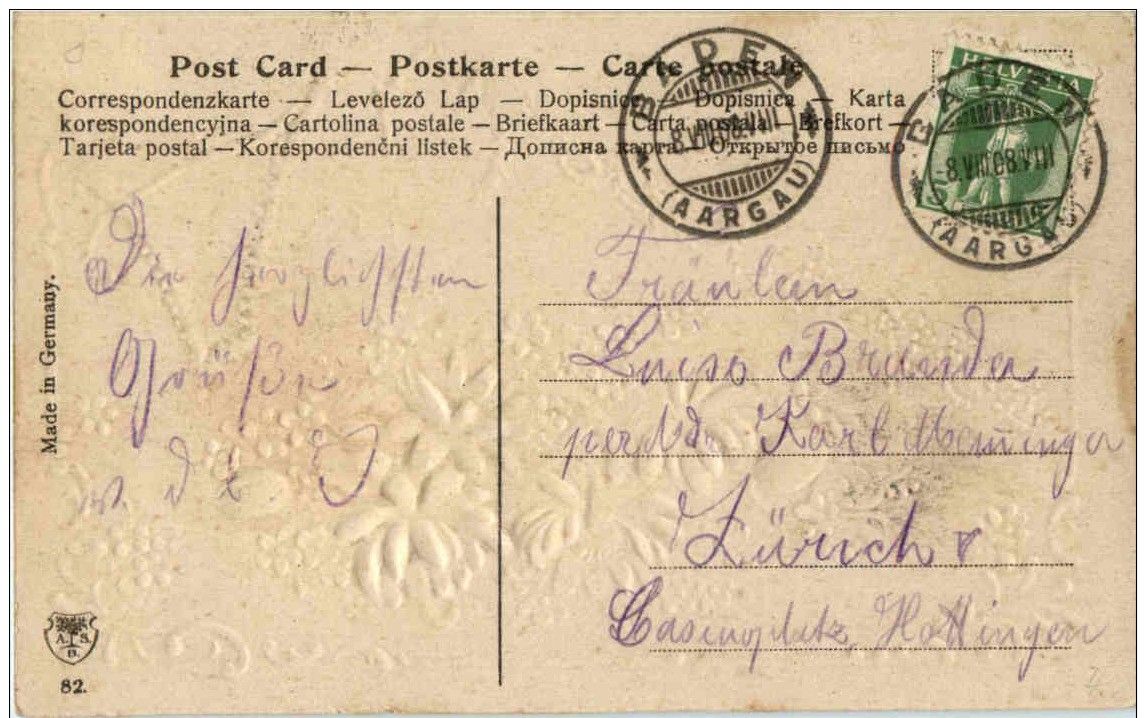 Post Card — Postkarte — Carte postale
Correspondenzkarte — Levelező Lap — Dopisnice — Dopisnica — Karta
korespondencyjna — Cartolina postale — Briefkaart — Carta postală — Brefkort —
Tarjeta postal — Korespondenčni listek — Дописна карта — Открытое письмо
BADEN
8.VIII.08.VIII
(AARGAU)
HELVETIA
BADEN
-8.VIII.08.VIII
(AARGAU)
Made in Germany.
Die herzlichsten
Grüße
Fräulein
Luise Brunda
Karl Memminger
Zürich V
Casinoplatz, Hottingen
A. S.
B.
82.